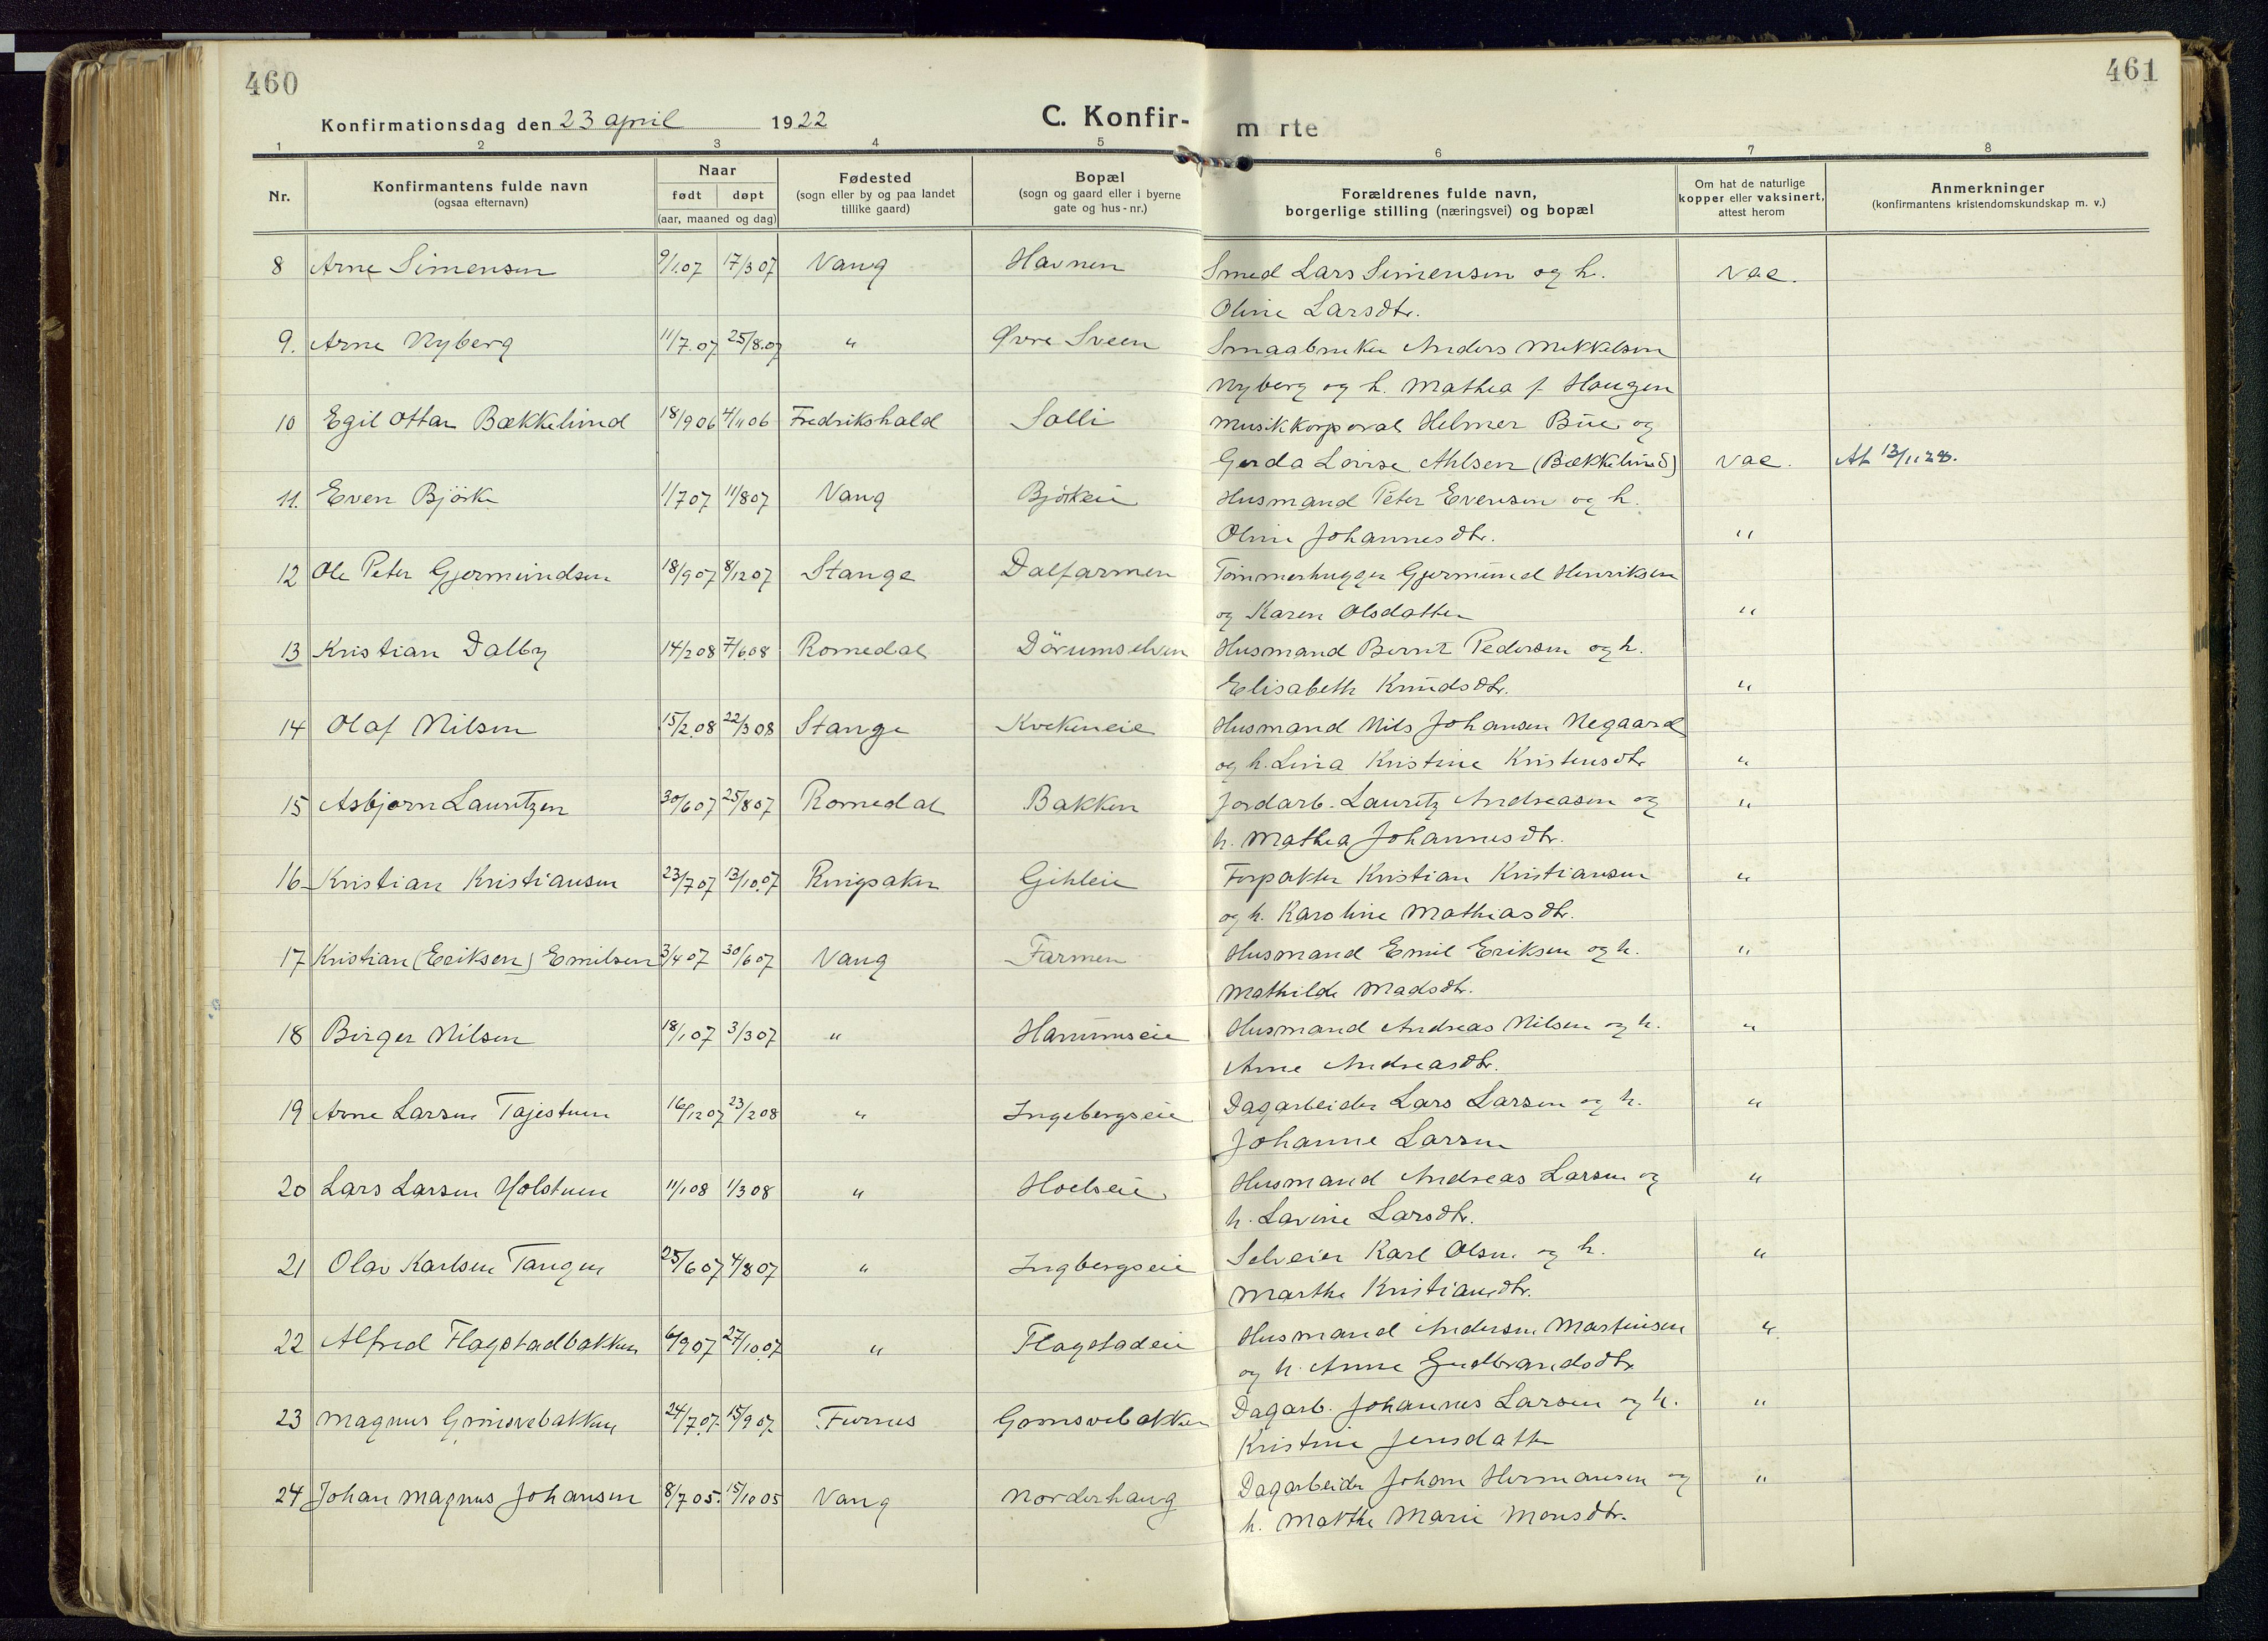 460
461
Konfirmationsdag den 23 april 1922
C. Konfir- m rte
1 2 3 4 5 6 7 8
Nr.
Konfirmantens fulde navn
(ogsaa efternavn)
Naar
født døpt
(aar, maaned og dag)
Fødested
(sogn eller by og paa landet
tillike gaard)
Bopæl
(sogn og gaard eller i byerne
gate og hus-nr.)
Forældrenes fulde navn,
borgerlige stilling (næringsvei) og bopæl
Om hat de naturlige
kopper eller vaksinert,
attest herom
Anmerkninger
(konfirmantens kristendomskundskap m. v.)
8 Arne Simensen 9/1 07 17/3 07 Vang Havnen Smed Lars Simensen og h. vac.
Oline Larsdtr.
9. Arne Nyberg 11/7.07 25/8.07 " Øvre Sveen Smaabruker Anders Mikkelsen
Nyberg og h. Mathea f. Haugen
10 Egil Ottar Bækkelund 18/9 06 4/11 06 Fredrikshald Solli Musikkorporal Helmer Bue og
Gerda Lovise Ahlsen (Bækkelund) vac. At 13/1 28.
11. Even Björke 1/7 07 11/8 07 Vang Björkeie Husmand Peter Evensen og h.
Oline Johannesdtr. "
12 Ole Peter Gjermundsen 18/9 07 8/12 07 Stange Dalfarmen Tømmerhugger Gjermund Henriksen
og Karen Olsdatter "
13 Kristian Dalby 14/2 08 7/6.08 Romedal Dörumselven Husmand Bernt Pedersen og h.
Elisabeth Knudsdtr. "
14 Olaf Nilsen 15/2.08 22/3 08 Stange Kvekeneie Husmand Nils Johansen Negaard
og h. Lina Kristine Kristensdtr "
15 Asbjørn Lauritzen 30/6 07 25/8 07 Romedal Bakken Jordarb. Lauritz Andreasen og "
h. Mathea Johannesdtr.
16 Kristian Kristiansen 23/7 07 13/10.07 Ringsaker Gihleie Forpakter Kristian Kristiansen "
og h. Karoline Mathiasdtr.
17 Kristian (Eriksen) Emilsen 3/4 07 30/6 07 Vang Farmen Husmand Emil Eriksen og h. "
Mathilde Madsdtr.
18 Birger Nilsen 18/1 07 3/3 07 " Hanumseie Husmand Andreas Nilsen og h. "
Anne Andreasdtr.
19 Arne Larsen Tajestuen 16/12 07 23/2 08 " Ingebergseie Dagarbeider Lars Larsen og h. "
Johanne Larsen
20 Lars Larsen Holstuen 11/1 08 1/3 08 " Hoelseie Husmand Andreas Larsen og "
h. Lavine Larsdtr.
21 Olav Karlsen Tangen 25/6 07 4/8 07 " Ingbergseie Selveier Karl Olsen og h. "
Marthe Kristiansdtr.
22 Alfred Flagstadbakken 6/9 07 27/10.07 " Flagstadeie Husmand Andersen Martinsen "
og h. Anne Gudbrandsdtr
23 Magnus Grimsvebakken 24/7.07. 15/9 07 Furnes Gomsvebakken Dagarb. Johannes Larsen og h. "
Kristine Jensdatter
24 Johan Magnus Johansen 8/7 05. 15/10 05 Vang Norderhaug Dagarbeider Johan Hermansen og "
h. Marthe Marie Monsdtr.